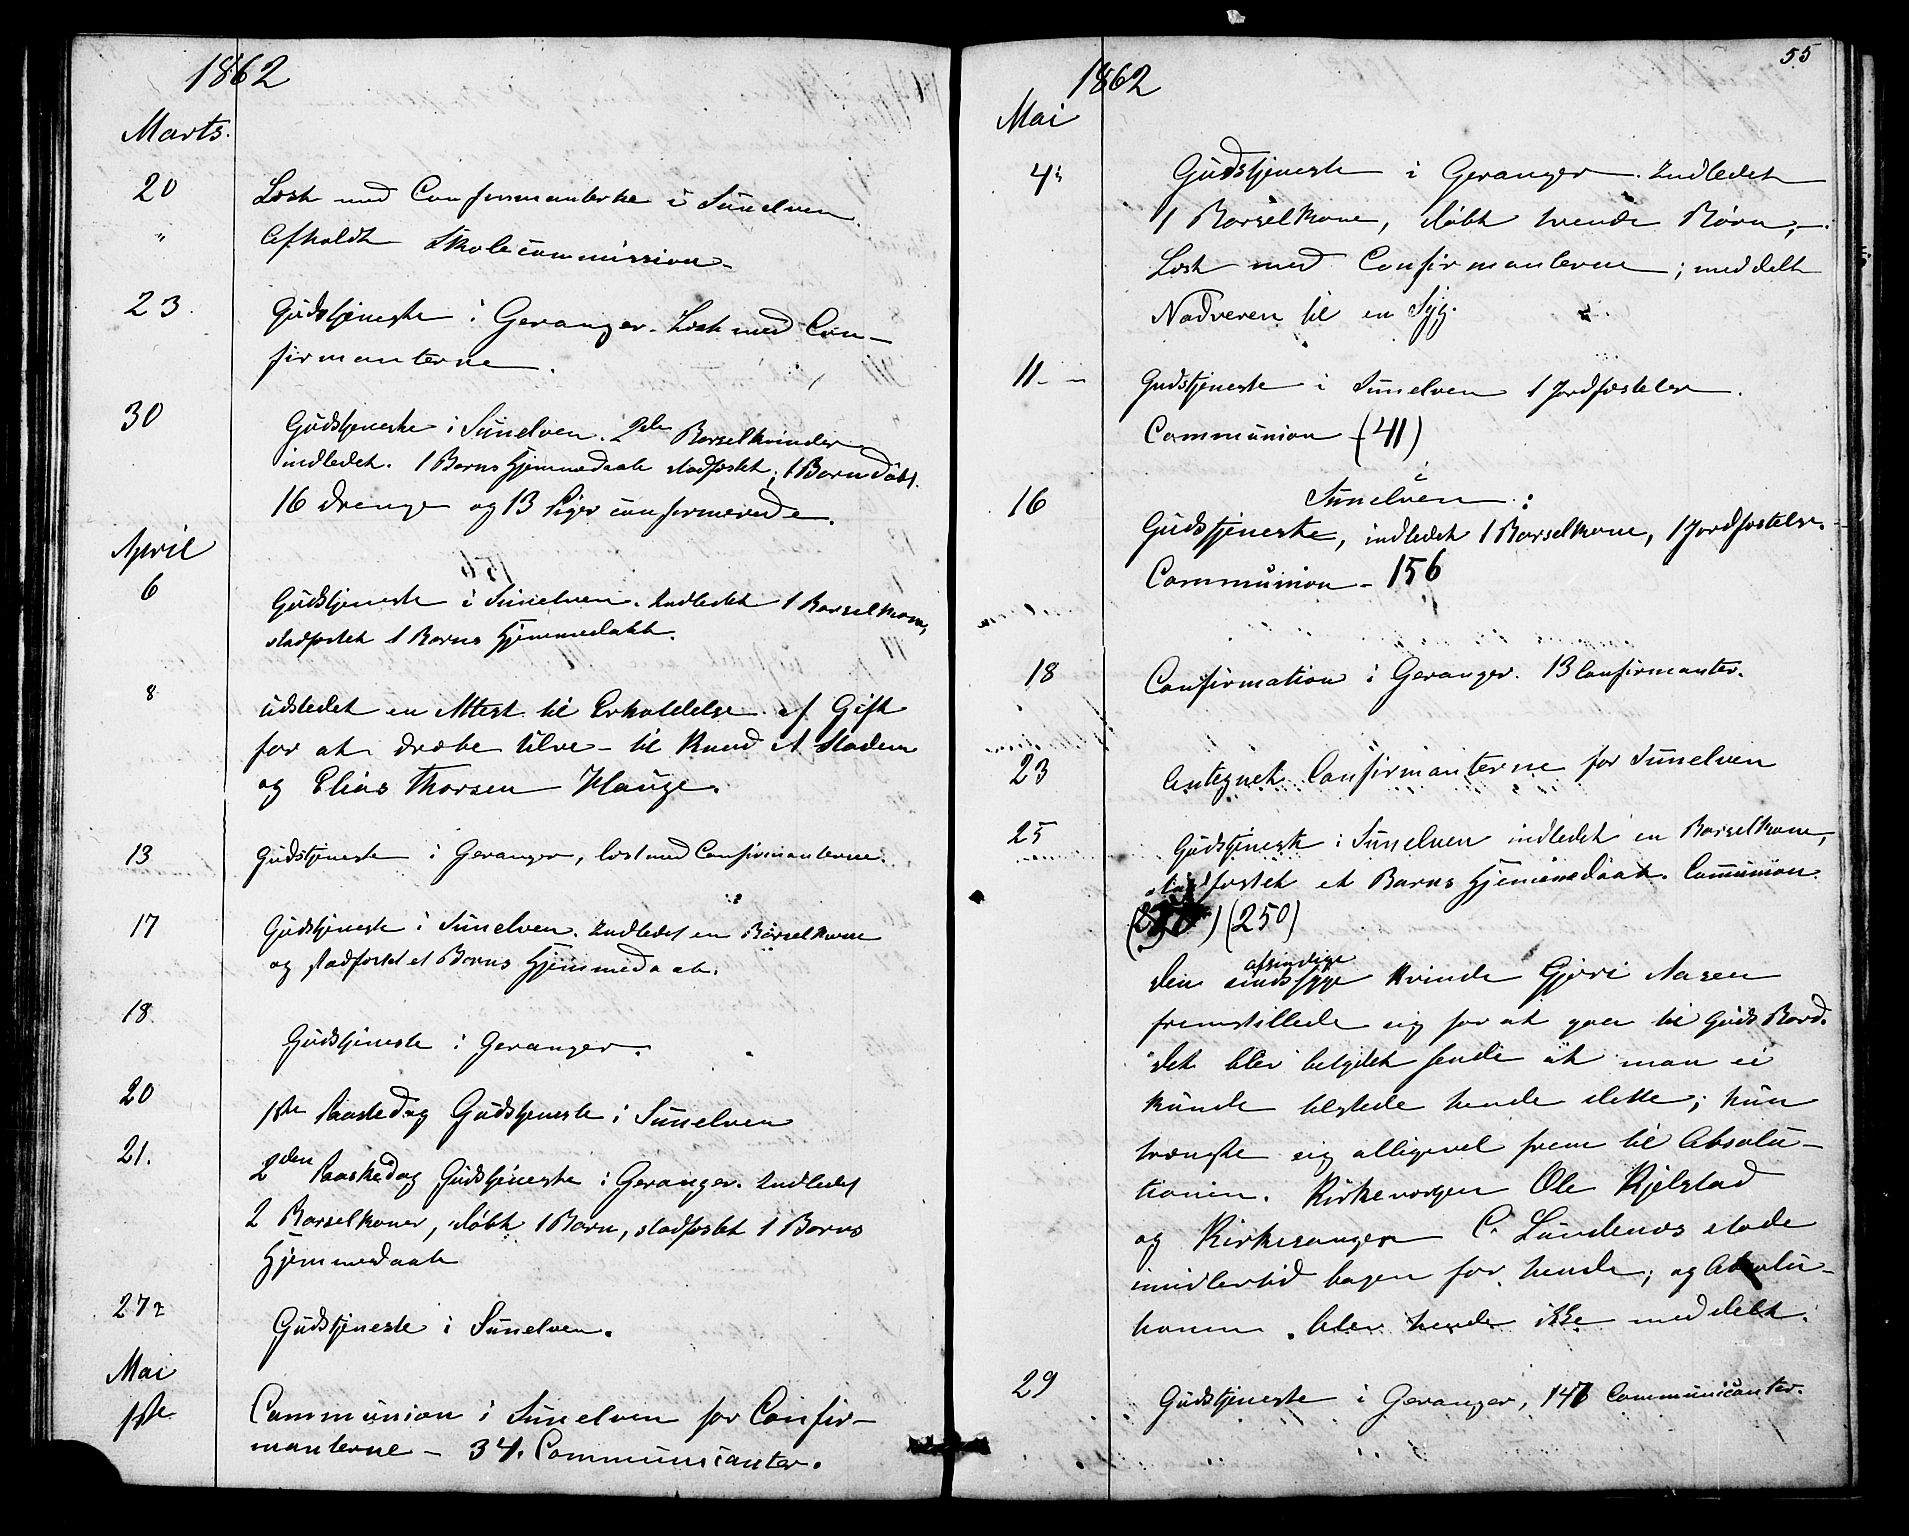 1862
Marts.
20 Læst med Confirmanterne i Sunelven.
" Afholdt Skolecommission
23. Gudstjeneste i Geranger. Læst med Con-
firmanterne.
30 Gudstjeneste i Sunelven. 2de Barselkvinder
indledet. 1 Barns Hjemmedaab stadfæstet; 1 Barn døbt.
16 Drenge og 13 Piger confirmerede.
April
6 Gudstjeneste i Sunelven. Indledet 1 Barselkone,
stadfæstet 1 Barns Hjemmedaab.
8 Udstedet en Attest til Erholdelse af Gift
for at dræbe Ulve - til Knud A Staden
og Elias Thorsen Hauge.
13 Gudstjeneste i Geranger, læst med Confirmanterne.
17 Gudstjeneste i Sunelven. Indledet en Barselkone
og stadfæstet et Barns Hjemmedaab.
18. Gudstjeneste i Geranger.
20 1ste Paaskedag Gudstjeneste i Sunelven
21. 2den Paaskedag Gudstjeneste i Geranger. Indledet
2 Barselkoner, døbt 1 Barn, stadfæstet 1 Barns
Hjemmedaab
27 Gudstjeneste i Sunelven.
Mai
1ste Communion i Sunelven for Confir-
manterne - 34. Communicanter.
55
1862
Mai
4 Gudstjeneste i Geranger. Indledet
1 Barselkone, døbt tvende Børn,
Læst med Confirmanterne; meddelt
Nadveren til en Syg.
11 Gudstjeneste i Sunelven 1 Jordfæstelse.
Communion (41)
16 i Sunelven:
Gudstjeneste, indledet 1 Barselkone, 1 Jordfæstelse.
Communion - 156
18 Confirmation i Geranger. 13 Confirmanter.
23 Antegnet Confirmanterne for Sunelven
25 Gudstjeneste i Sunelven indledet en Barselkone,
stadfæstet et Barns Hjemmedaab. Communion
(250)
afsindige
Den sindssyge Kvinde Gjøri Aasen
fremstillede sig for at gaa til Guds Bord.
Det blev betydet hende at man ei
kunde tilstede hende dette; hun
trængte sig alligevel frem til Absolu-
tionen. Kirkeværgen Ole Kjelstad
og Kirkesanger C. Lundenæs stode
imidlertid bagen for hende; og Absolu-
tionen blev hende ikke meddelt.
29 Gudstjeneste i Geranger, 146 Communicanter.